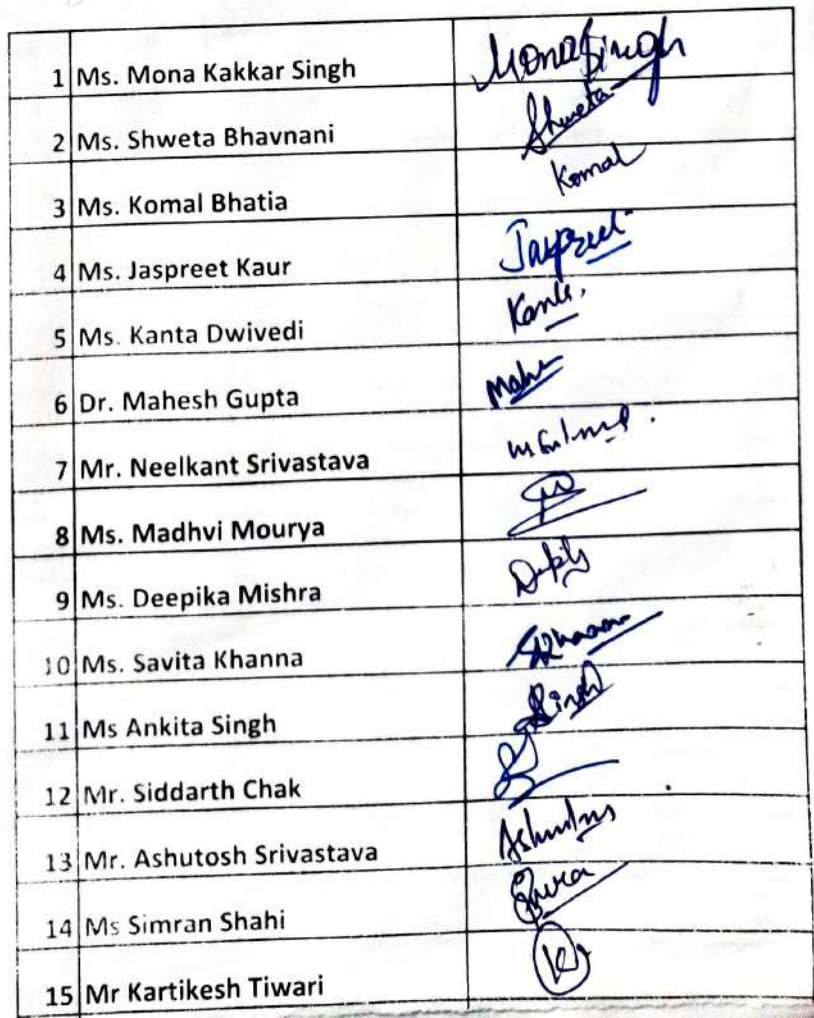 1 Ms. Mona Kakkar Singh Mona Singh
2 Ms. Shweta Bhavnani Shweta
3 Ms. Komal Bhatia Komal
4 Ms. Jaspreet Kaur Jaspreet
5 Ms. Kanta Dwivedi Kanta
6 Dr. Mahesh Gupta
7 Mr. Neelkant Srivastava
8 Ms. Madhvi Mourya
9 Ms. Deepika Mishra
10 Ms. Savita Khanna
11 Ms Ankita Singh Singh
12 Mr. Siddarth Chak
13 Mr. Ashutosh Srivastava
14 Ms Simran Shahi
15 Mr Kartikesh Tiwari